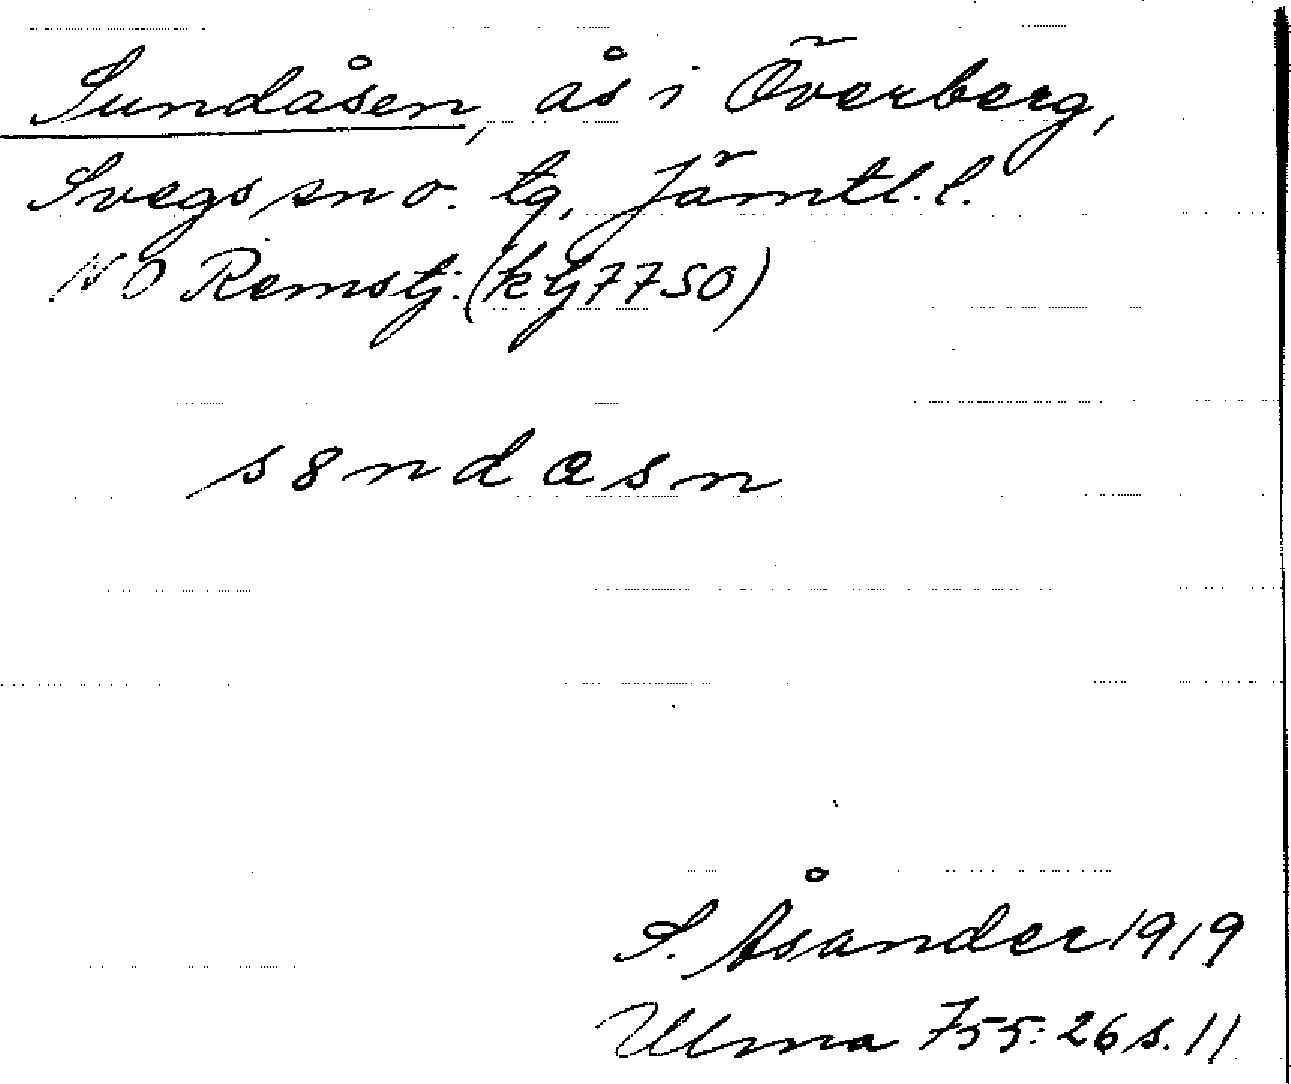 Sundåsen, ås i Överberg,
Svegs sn o. tg, Jämtl. l.
NO Remstj. (ktj 7750)
s8ndasn
S. Åsander 1919
Ulma 755:26 s. 11